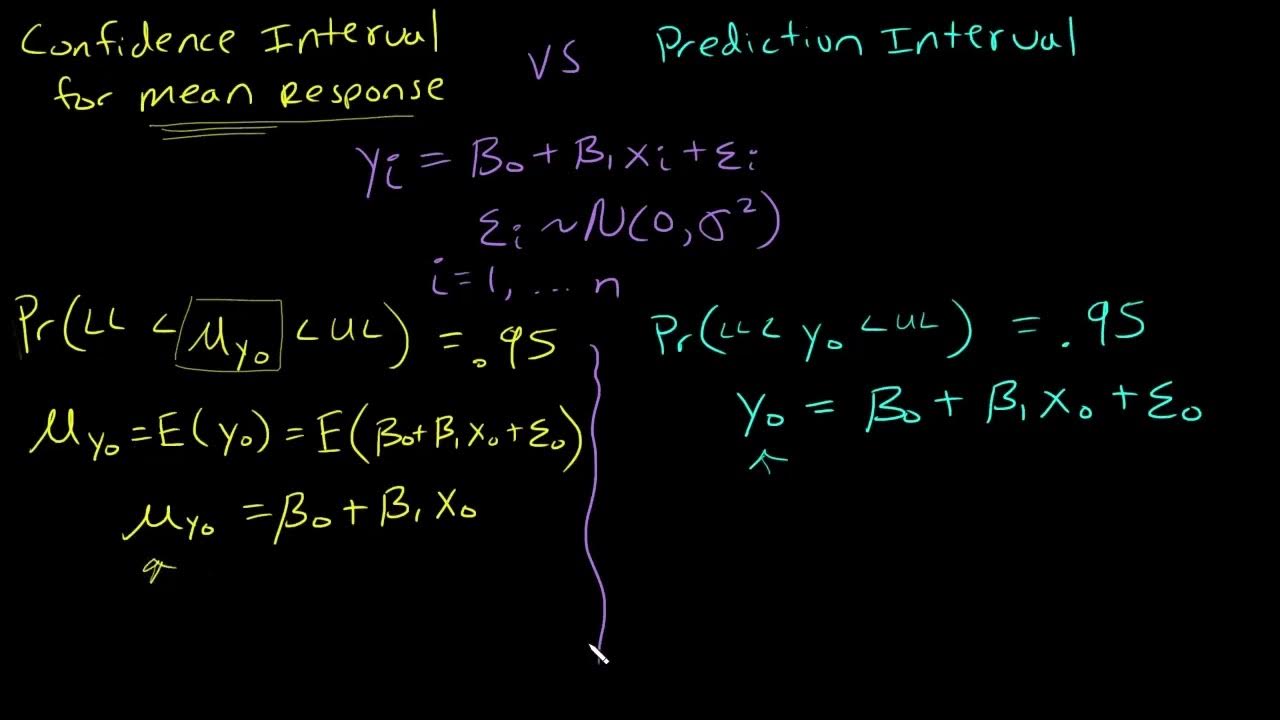 Confidence Interval
for mean Response
vs
Prediction Interval
yᵢ = β₀ + β₁xᵢ + εᵢ
εᵢ ~ N(0, σ²)
i = 1, ... n
Pr(LL < μ_y₀ < UL) = .95
μ_y₀ = E(y₀) = E(β₀ + β₁x₀ + ε₀)
μ_y₀ = β₀ + β₁x₀
Pr(LL < y₀ < UL) = .95
y₀ = β₀ + β₁x₀ + ε₀